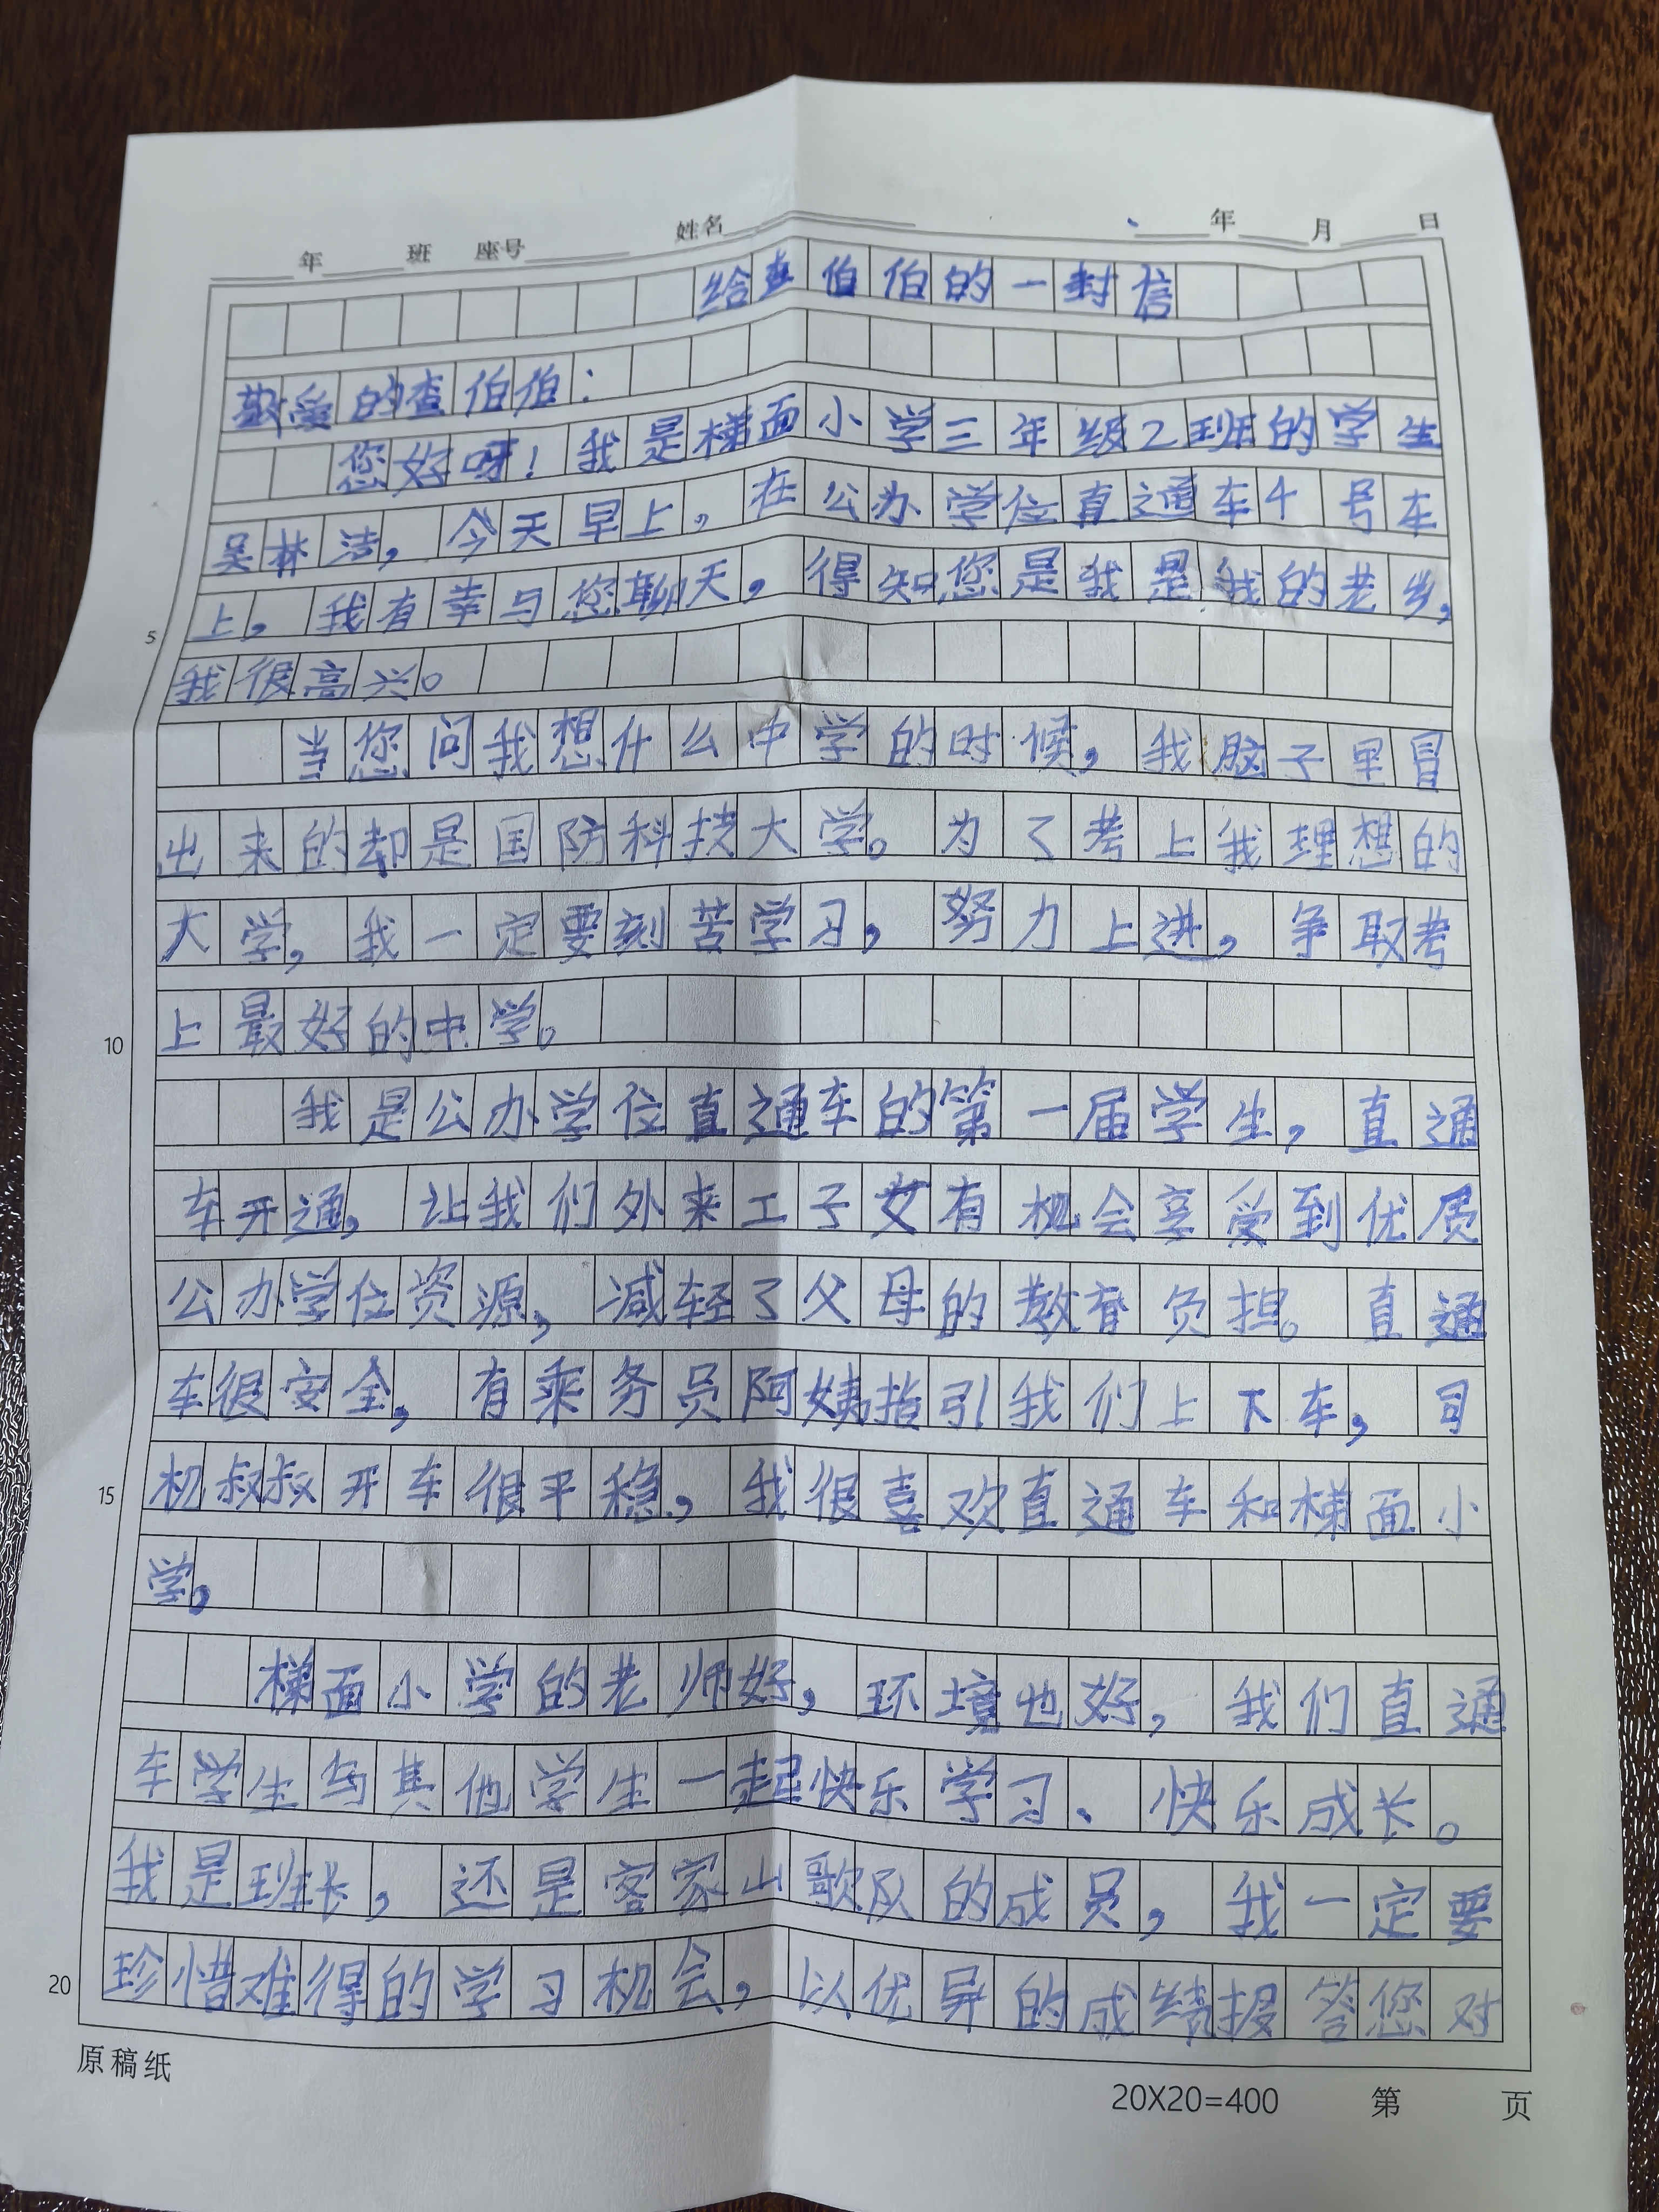 年 班 座号 姓名 年 月 日
给查伯伯的一封信
敬爱的查伯伯：
您好呀！我是梯面小学三年级2班的学生
吴林洁，今天早上，在公办学位直通车4号车
上，我有幸与您聊天，得知您是我是我的老乡，
5
我很高兴。
当您问我想什么中学的时候，我脑子里冒
出来的却是国防科技大学。为了考上我理想的
大学，我一定要刻苦学习，努力上进，争取考
10
上最好的中学。
我是公办学位直通车的第一届学生，直通
车开通，让我们外来工子女有机会享受到优质
公办学位资源，减轻了父母的教育负担。直通
车很安全，有乘务员阿姨指引我们上下车，司
15
机叔叔开车很平稳，我很喜欢直通车和梯面小
学。
梯面小学的老师好，环境也好，我们直通
车学生与其他学生一起快乐学习、快乐成长。
我是班长，还是客家山歌队的成员，我一定要
20
珍惜难得的学习机会，以优异的成绩报答您对
原稿纸
20X20=400 第 页